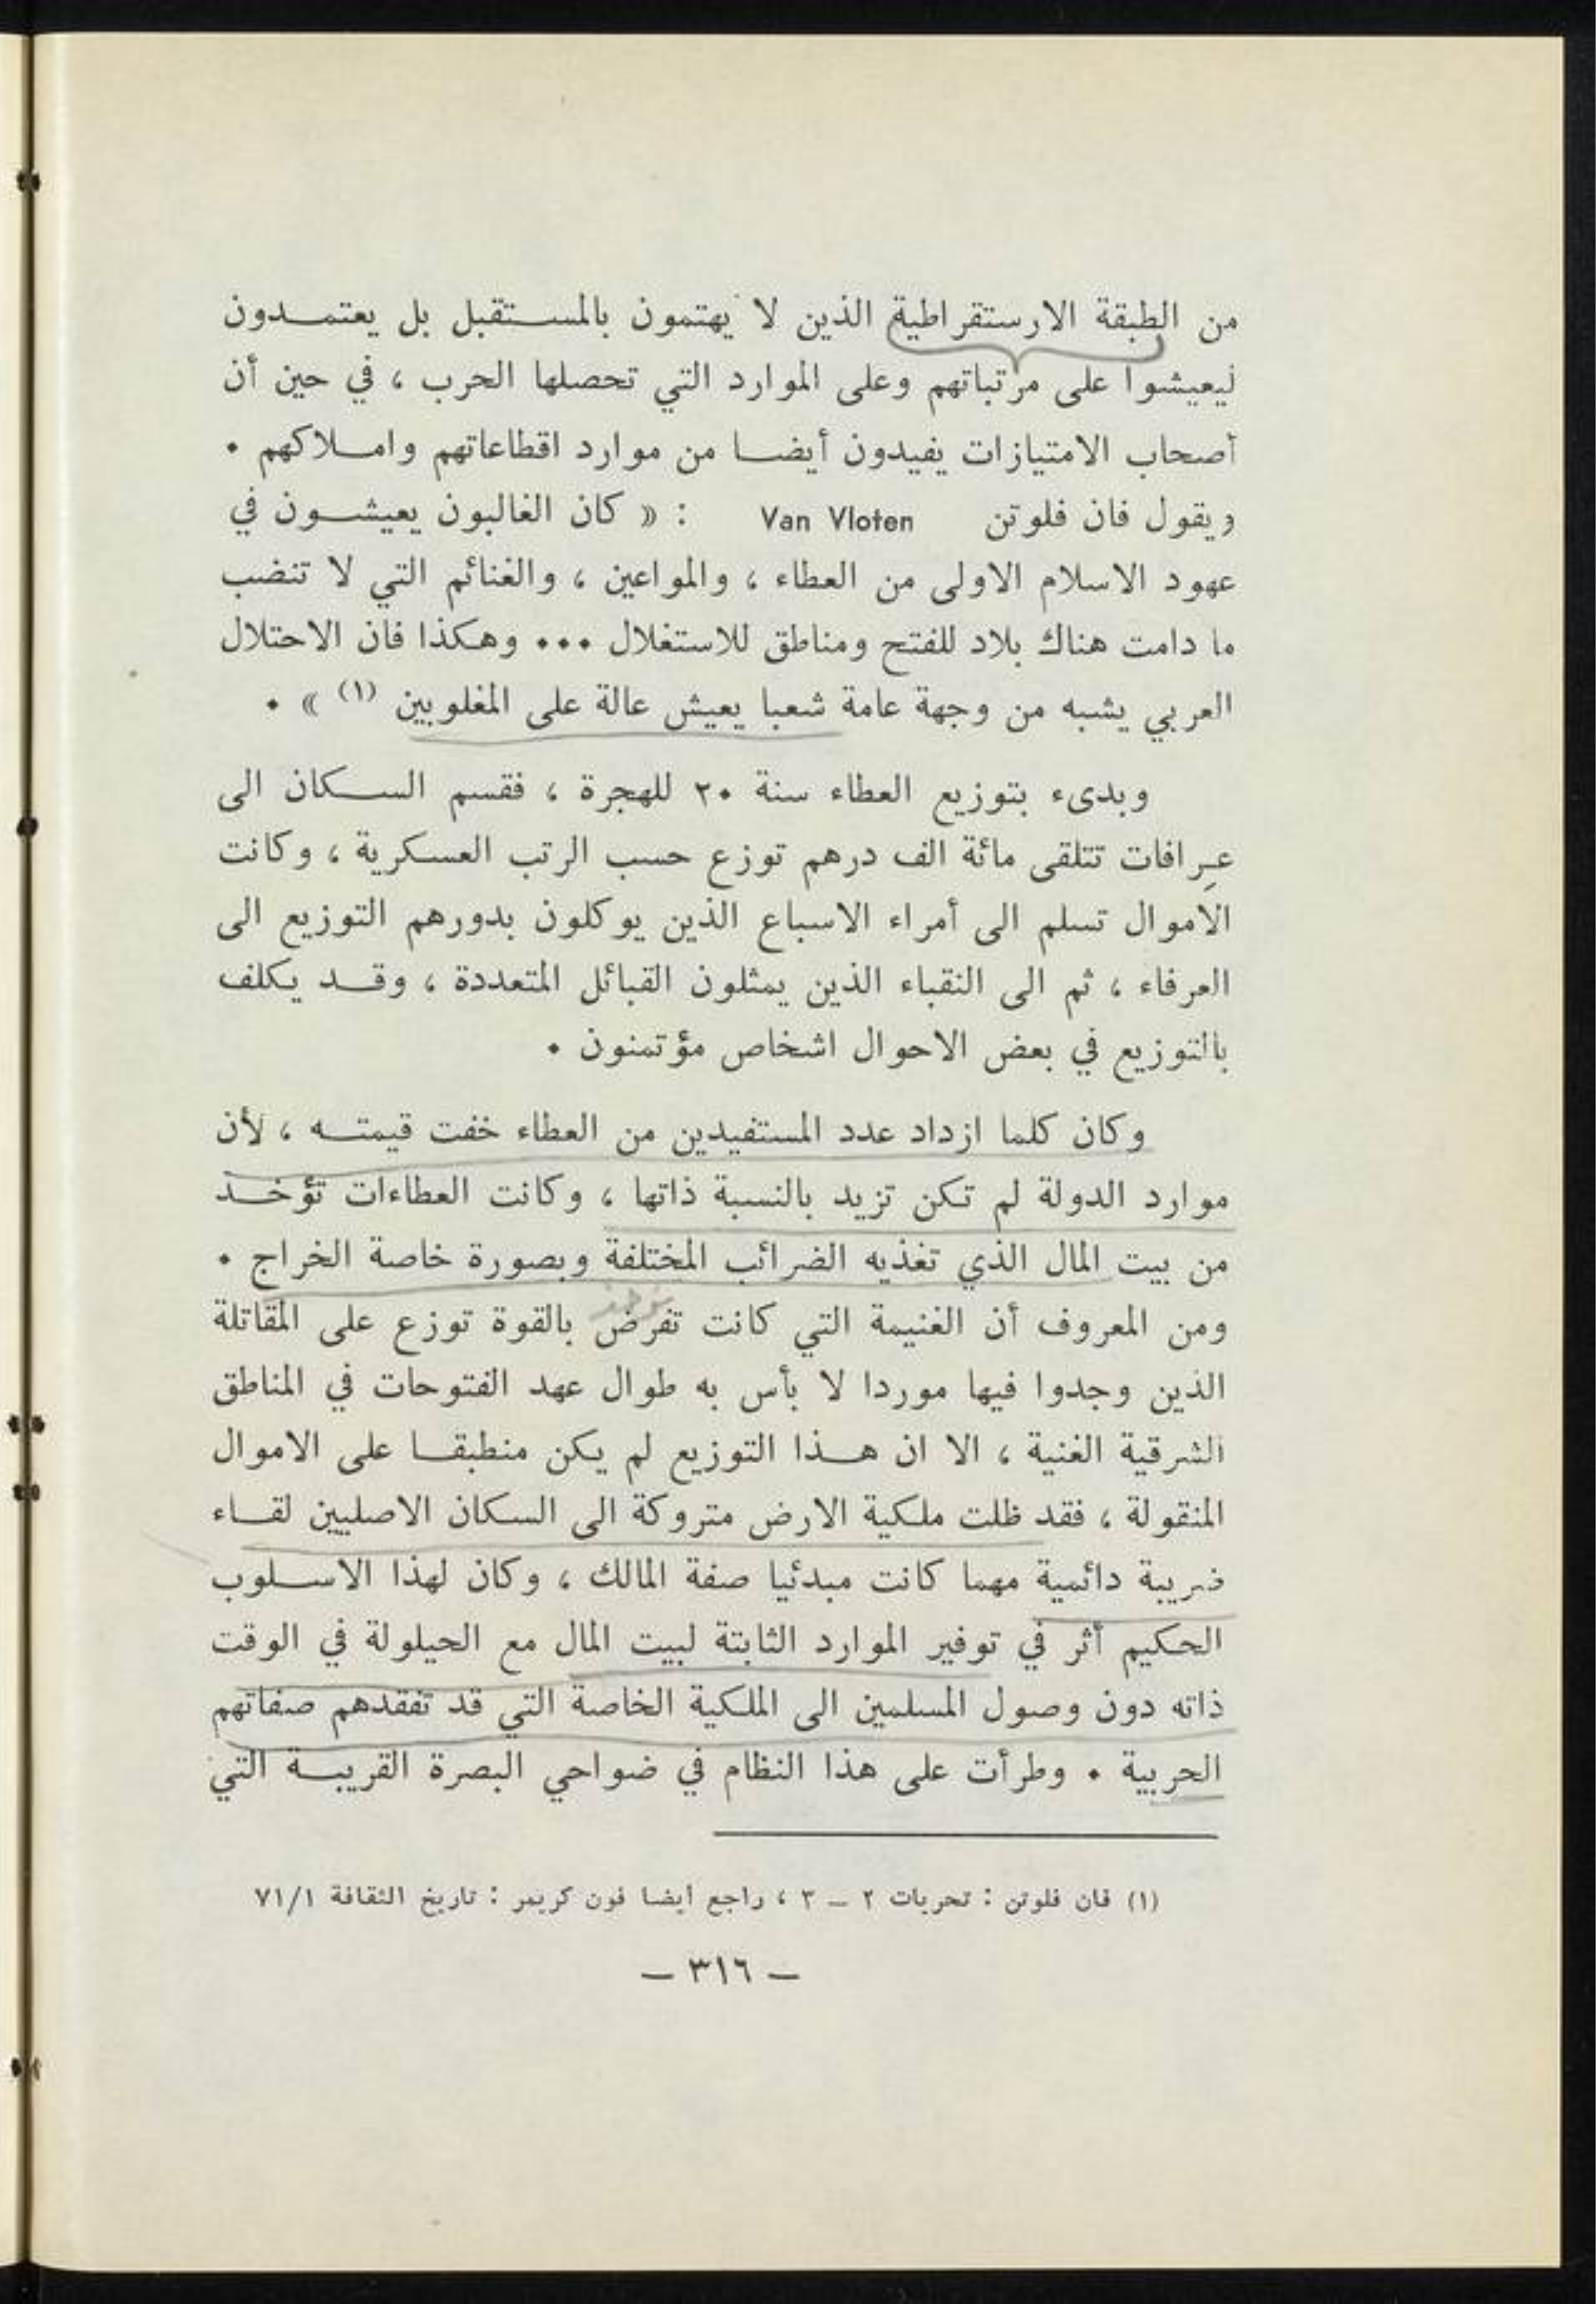 من الطبقة الارستقراطية الذين لا يهتمون بالمستقبل بل يعتمدون
ليعيشوا على مرتباتهم وعلى الموارد التي تحصلها الحرب ، في حين أن
أصحاب الامتيازات يفيدون أيضا من موارد اقطاعاتهم واملاكهم .
ويقول فان فلوتن Van Vloten : « كان الغالبون يعيشون في
عهود الاسلام الاولى من العطاء ، والمواعين ، والغنائم التي لا تنضب
ما دامت هناك بلاد للفتح ومناطق للاستغلال ... وهكذا فان الاحتلال
العربي يشبه من وجهة عامة شعبا يعيش عالة على المغلوبين (١) » .
وبدىء بتوزيع العطاء سنة ٢٠ للهجرة ، فقسم السكان الى
عِرافات تتلقى مائة الف درهم توزع حسب الرتب العسكرية ، وكانت
الاموال تسلم الى أمراء الاسباع الذين يوكلون بدورهم التوزيع الى
العرفاء ، ثم الى النقباء الذين يمثلون القبائل المتعددة ، وقد يكلف
بالتوزيع في بعض الاحوال اشخاص مؤتمنون .
وكان كلما ازداد عدد المستفيدين من العطاء خفت قيمته ، لأن
موارد الدولة لم تكن تزيد بالنسبة ذاتها ، وكانت العطاءات تؤخد
من بيت المال الذي تغذيه الضرائب المختلفة وبصورة خاصة الخراج .
ومن المعروف أن الغنيمة التي كانت تفرض بالقوة توزع على المقاتلة
الذين وجدوا فيها موردا لا بأس به طوال عهد الفتوحات في المناطق
الشرقية الغنية ، الا ان هذا التوزيع لم يكن منطبقا على الاموال
المنقولة ، فقد ظلت ملكية الارض متروكة الى السكان الاصليين لقاء
ضريبة دائمية مهما كانت مبدئيا صفة المالك ، وكان لهذا الاسلوب
الحكيم أثر في توفير الموارد الثابتة لبيت المال مع الحيلولة في الوقت
ذاته دون وصول المسلمين الى الملكية الخاصة التي قد تفقدهم صفاتهم
الحربية . وطرأت على هذا النظام في ضواحي البصرة القريبة التي
(١) فان فلوتن : تحريات ٢ – ٣ ، راجع أيضا فون كريمر : تاريخ الثقافة ٧١/١
– ٣١٦ –